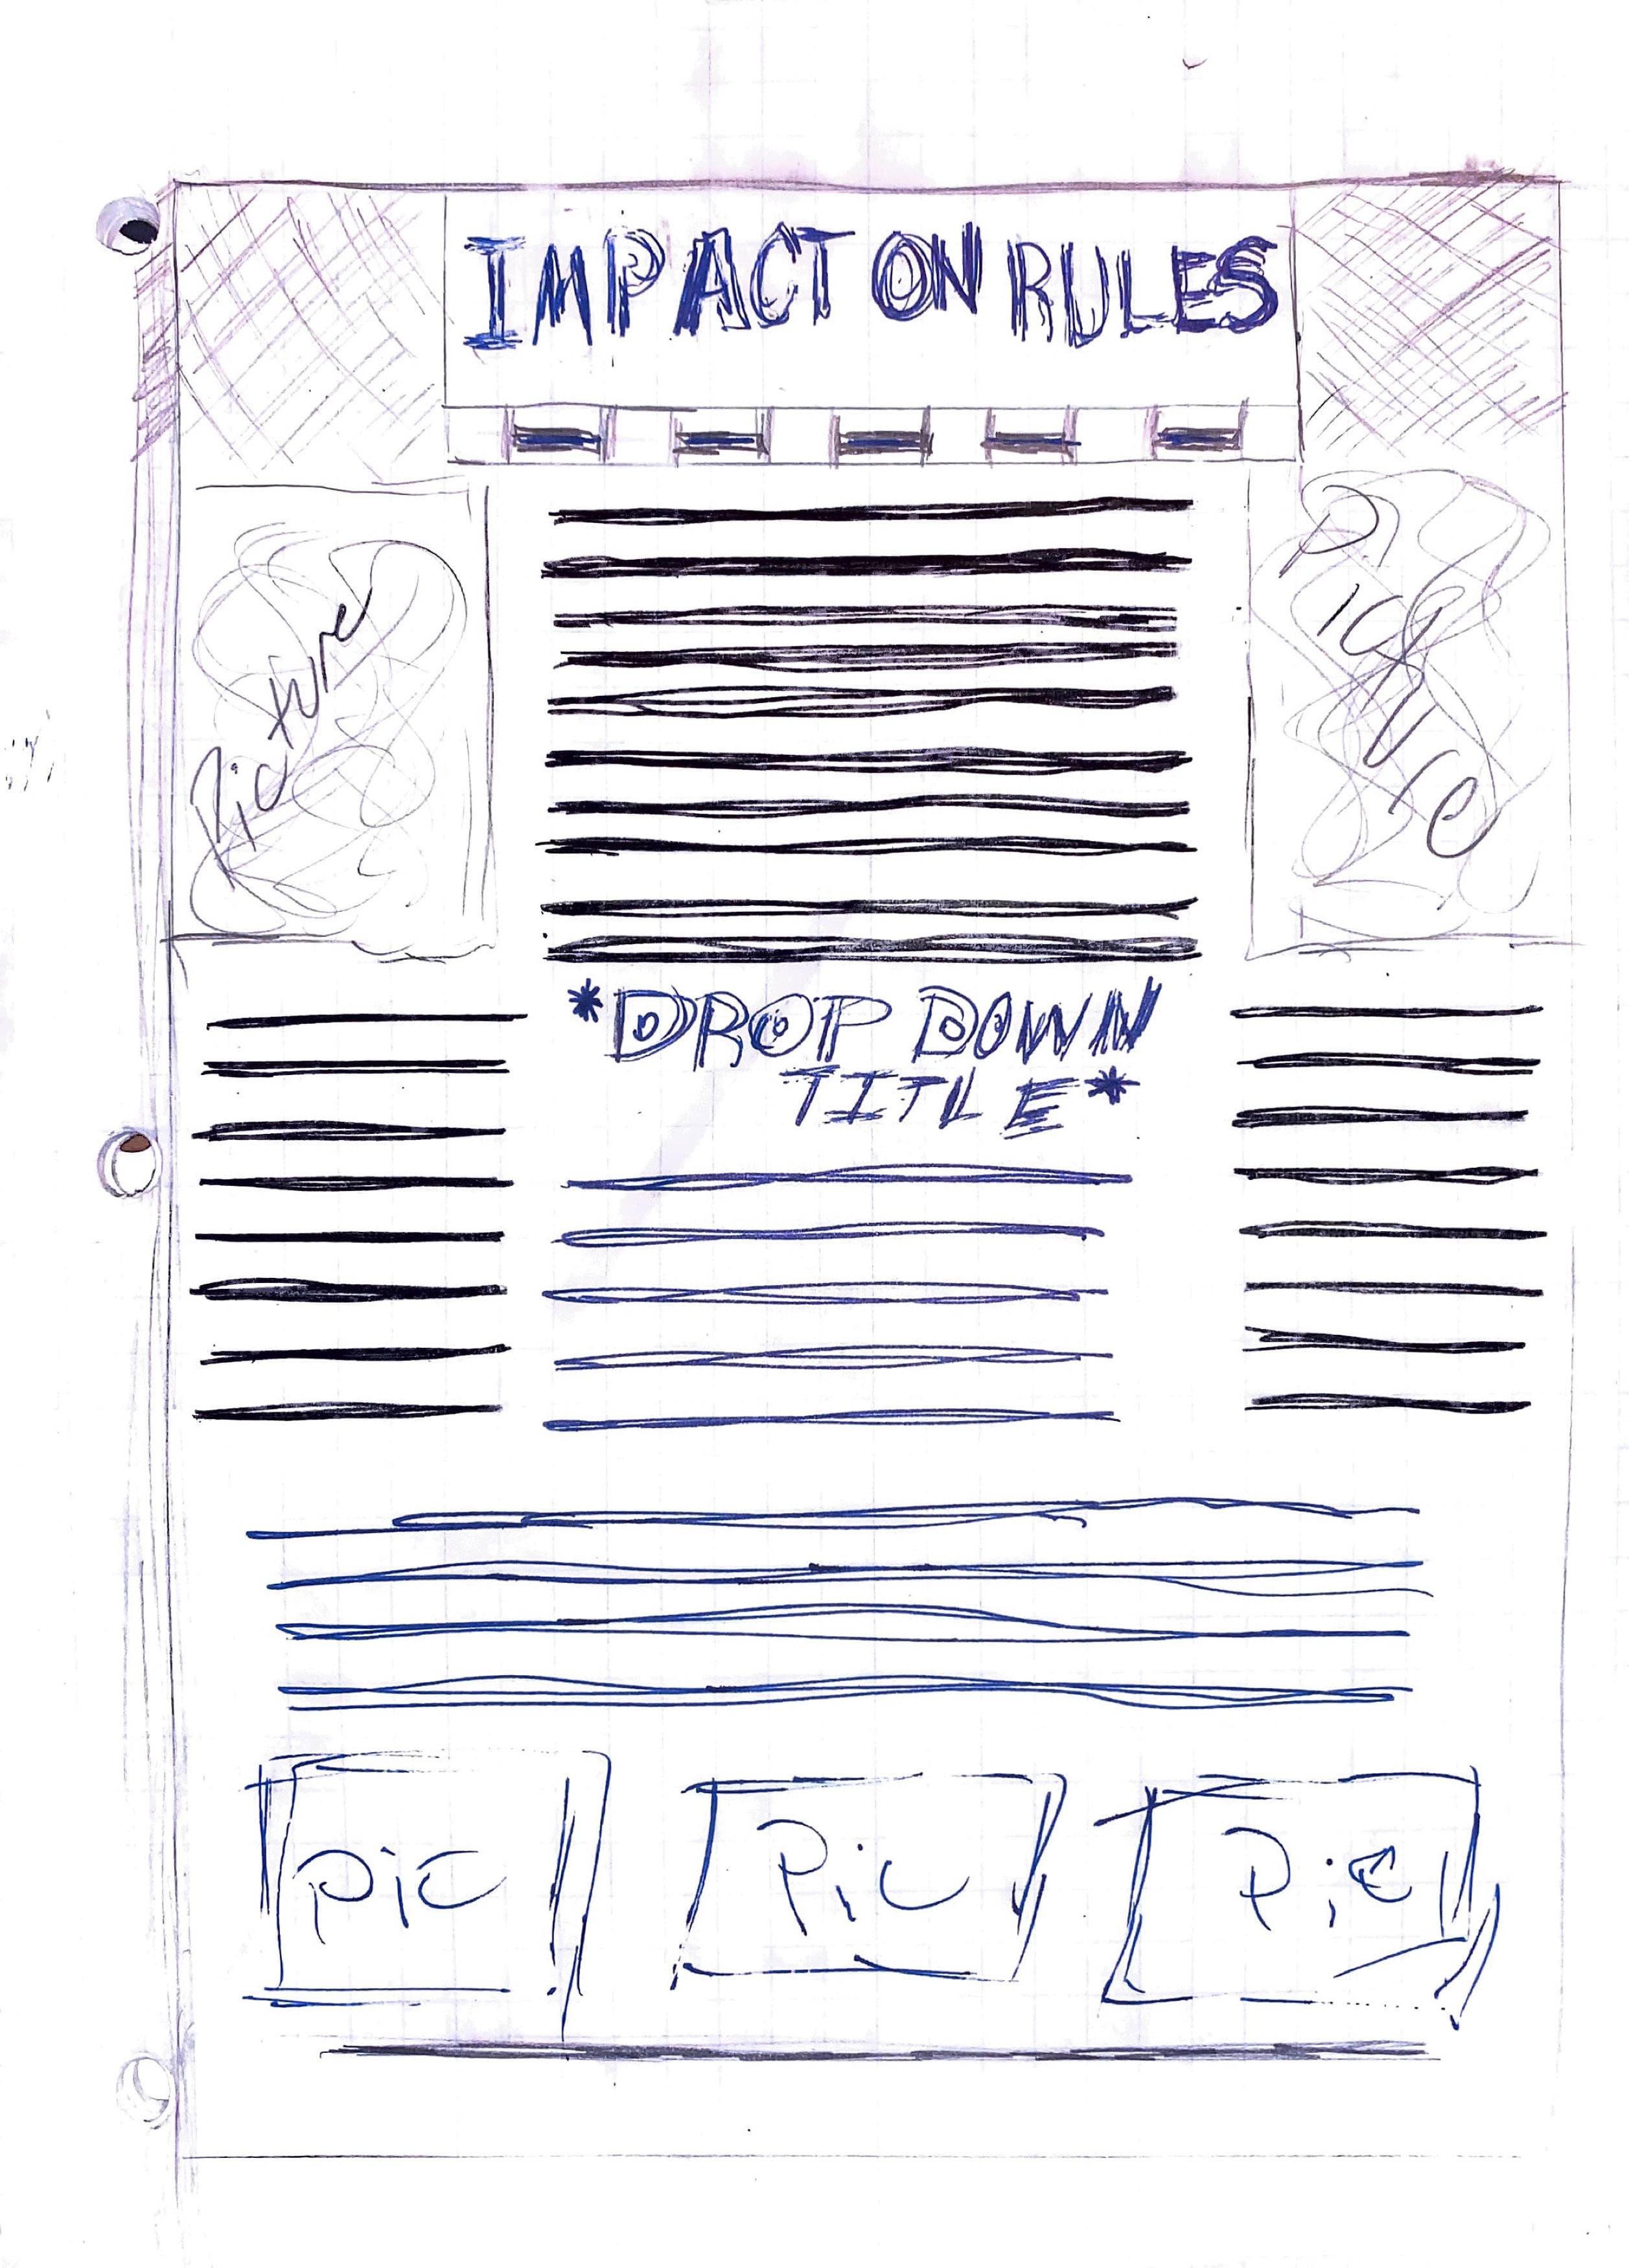 IMPACT ON RULES
Picture
Picture
*DROP DOWN
TITLE*
Pic
Pic
Pic